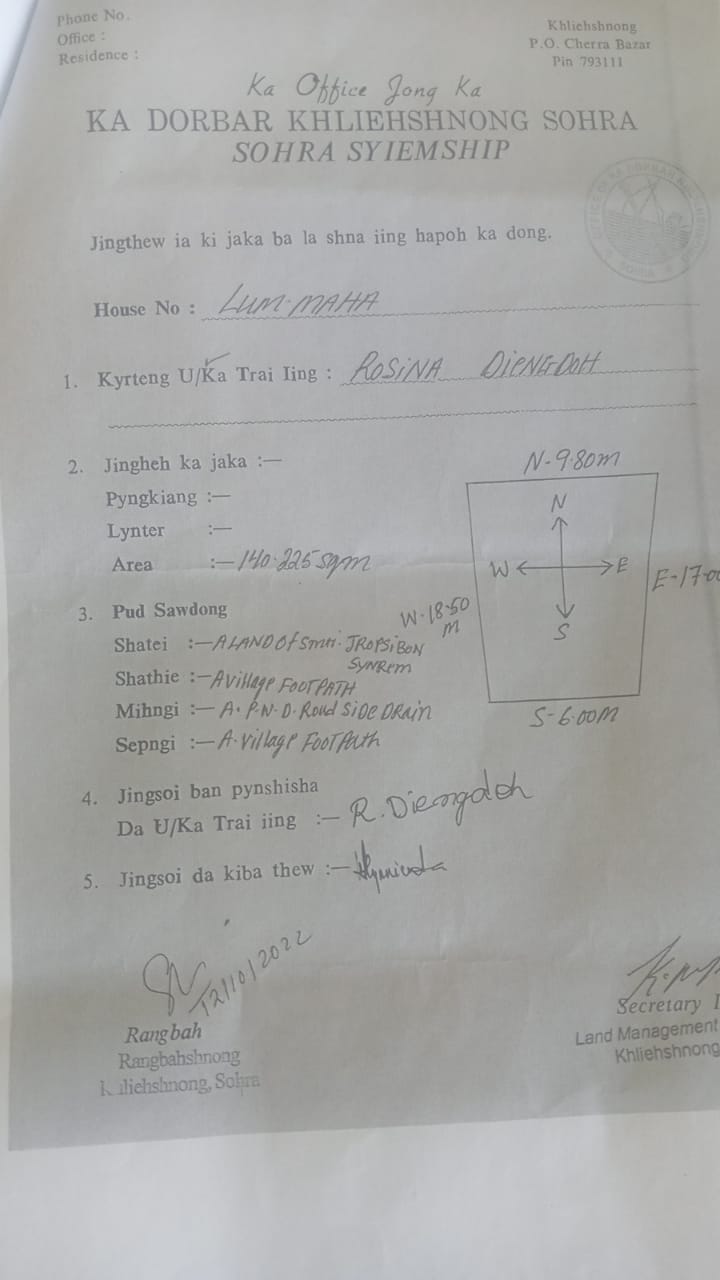 Phone No.
Office :
Residence :
Khliehshnong
P.O. Cherra Bazar
Pin 793111
Ka Office Jong Ka
KA DORBAR KHLIEHSHNONG SOHRA
SOHRA SYIEMSHIP
Jingthew ia ki jaka ba la shna iing hapoh ka dong.
House No : LUM-MAHA
1. Kyrteng U/Ka Trai Iing : ROSINA DIENGDOH
2. Jingheh ka jaka :—
Pyngkiang :—
Lynter :—
Area :— 140.225 sqm
N-9.80m
N
W E
S
E-17.00
W-18.50
m
S-6.00M
3. Pud Sawdong
Shatei :— A LAND Of Smti. TROPSIBON
SYNREM
Shathie :— A Village FOOTPATH
Mihngi :— A. P.W.D. Road SIDE DRAIN
Sepngi :— A. Village FOOTPath
4. Jingsoi ban pynshisha
Da U/Ka Trai iing :— R. Diengdoh
5. Jingsoi da kiba thew :—
12/10/2022
Rangbah
Rangbahshnong
Khliehshnong, Sohra
Secretary
Land Management
Khliehshnong